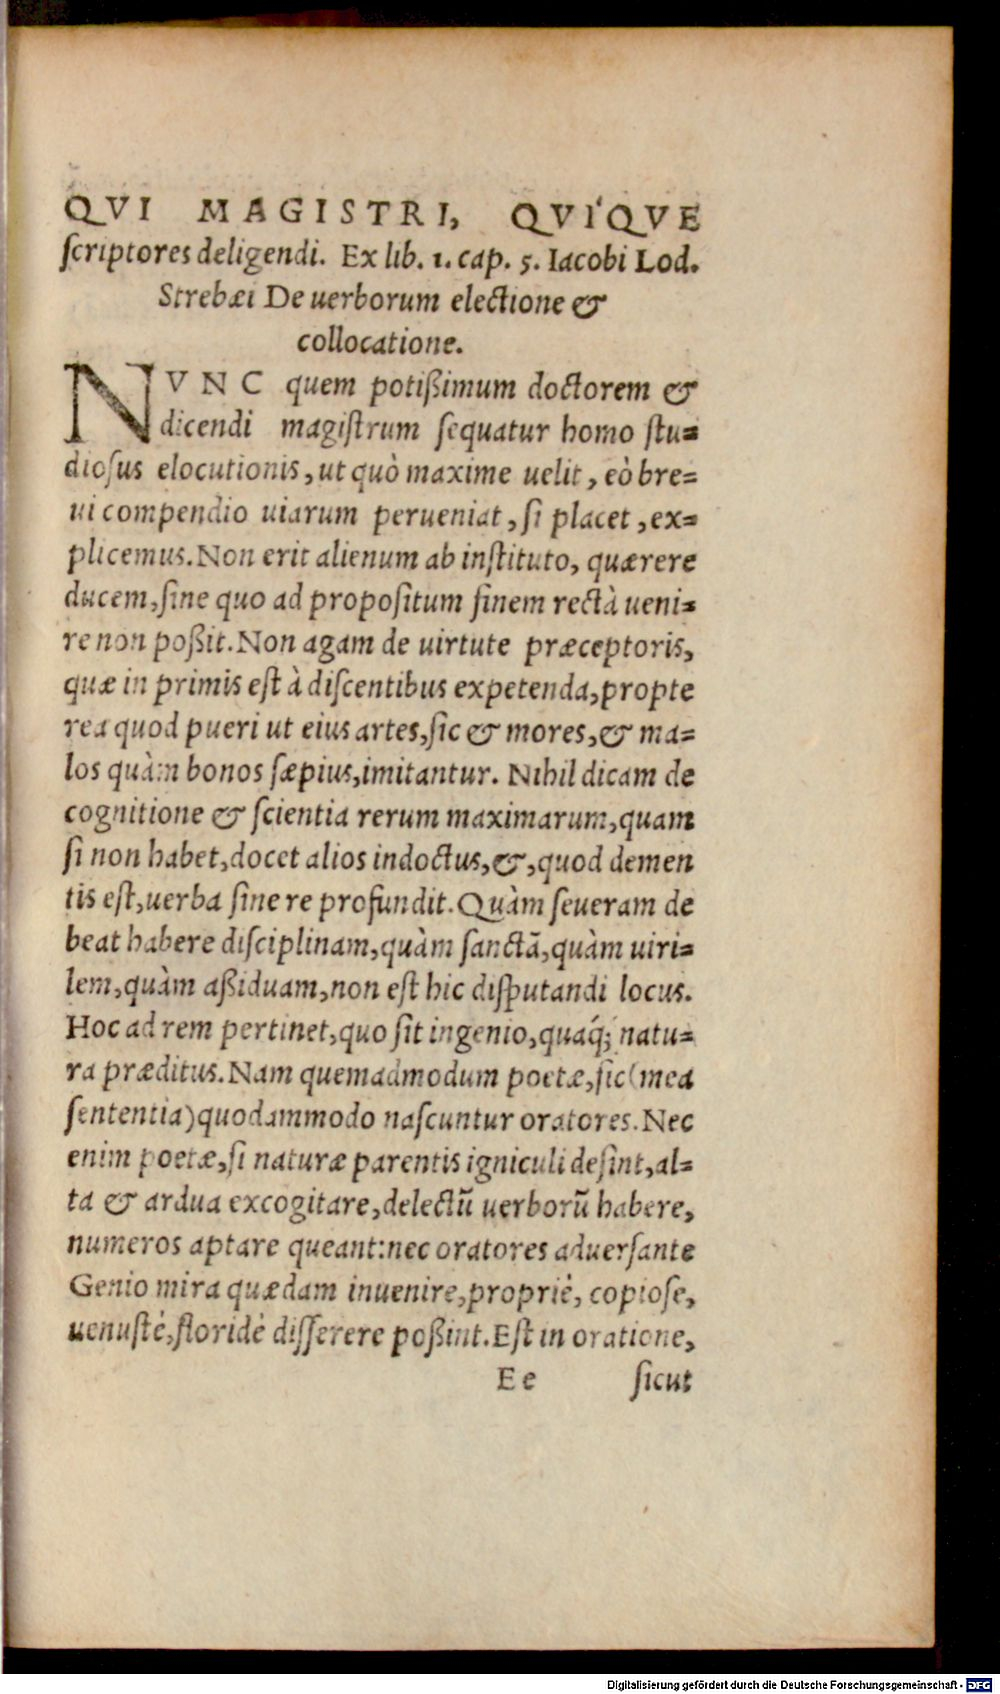 QVI MAGISTRI, QVI'QVE
ſcriptores deligendi. Ex lib. 1. cap. 5. Iacobi Lod.
Strebæi De uerborum electione &
collocatione.
NVNC quem potißimum doctorem &
dicendi magiſtrum ſequatur homo ſtu=
dioſus elocutionis, ut quò maxime uelit, eò bre=
ui compendio uiarum perueniat, ſi placet, ex=
plicemus. Non erit alienum ab inſtituto, quærere
ducem, ſine quo ad propoſitum finem rectà ueni=
re non poßit. Non agam de uirtute præceptoris,
quæ in primis eſt à diſcentibus expetenda, propte
rea quod pueri ut eius artes, ſic & mores, & ma=
los quàm bonos ſæpius, imitantur. Nihil dicam de
cognitione & ſcientia rerum maximarum, quam
ſi non habet, docet alios indoctus, &, quod demen
tis eſt, uerba ſine re profundit. Quàm ſeueram de
beat habere diſciplinam, quàm ſanctā, quàm uiri=
lem, quàm aßiduam, non eſt hic diſputandi locus.
Hoc ad rem pertinet, quo ſit ingenio, quaq́; natu=
ra præditus. Nam quemadmodum poetæ, ſic (mea
ſententia) quodammodo naſcuntur oratores. Nec
enim poetæ, ſi naturæ parentis igniculi deſint, al=
ta & ardua excogitare, delectū uerborū habere,
numeros aptare queant: nec oratores aduerſante
Genio mira quædam inuenire, propriè, copioſe,
uenuſtè, floridè diſſerere poßint. Eſt in oratione,
Ee ſicut
Digitalisierung gefördert durch die Deutsche Forschungsgemeinschaft - DFG